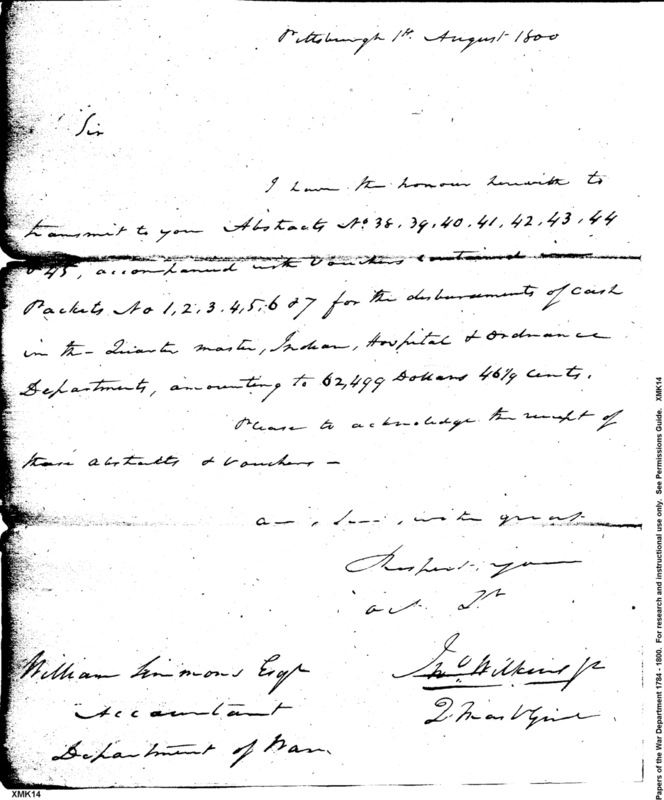 Pittsburgh 1st. August 1800
Sir
I have the honour herewith to
transmit to you Abstracts No. 38. 39. 40. 41. 42. 43. 44
& 45, accompanied with Vouchers contained in
Packets No 1, 2, 3. 4, 5, 6 & 7 for the disbursments of Cash
in the Quarter master, Indian, Hospital & Ordnance
Departments, amounting to 62,499 Dollars 46 1/9 Cents.
Please to acknoledge the receipt of
these Abstracts & Vouchers –
am, Sir, with great
Respect, your
William Simmons Esqr
Accountant
Department of War.
Jno Wilkins Jr
Q Mas Genl
XMK14
Papers of the War Department 1784 - 1800. For research and instructional use only. See Permissions Guide. XMK14